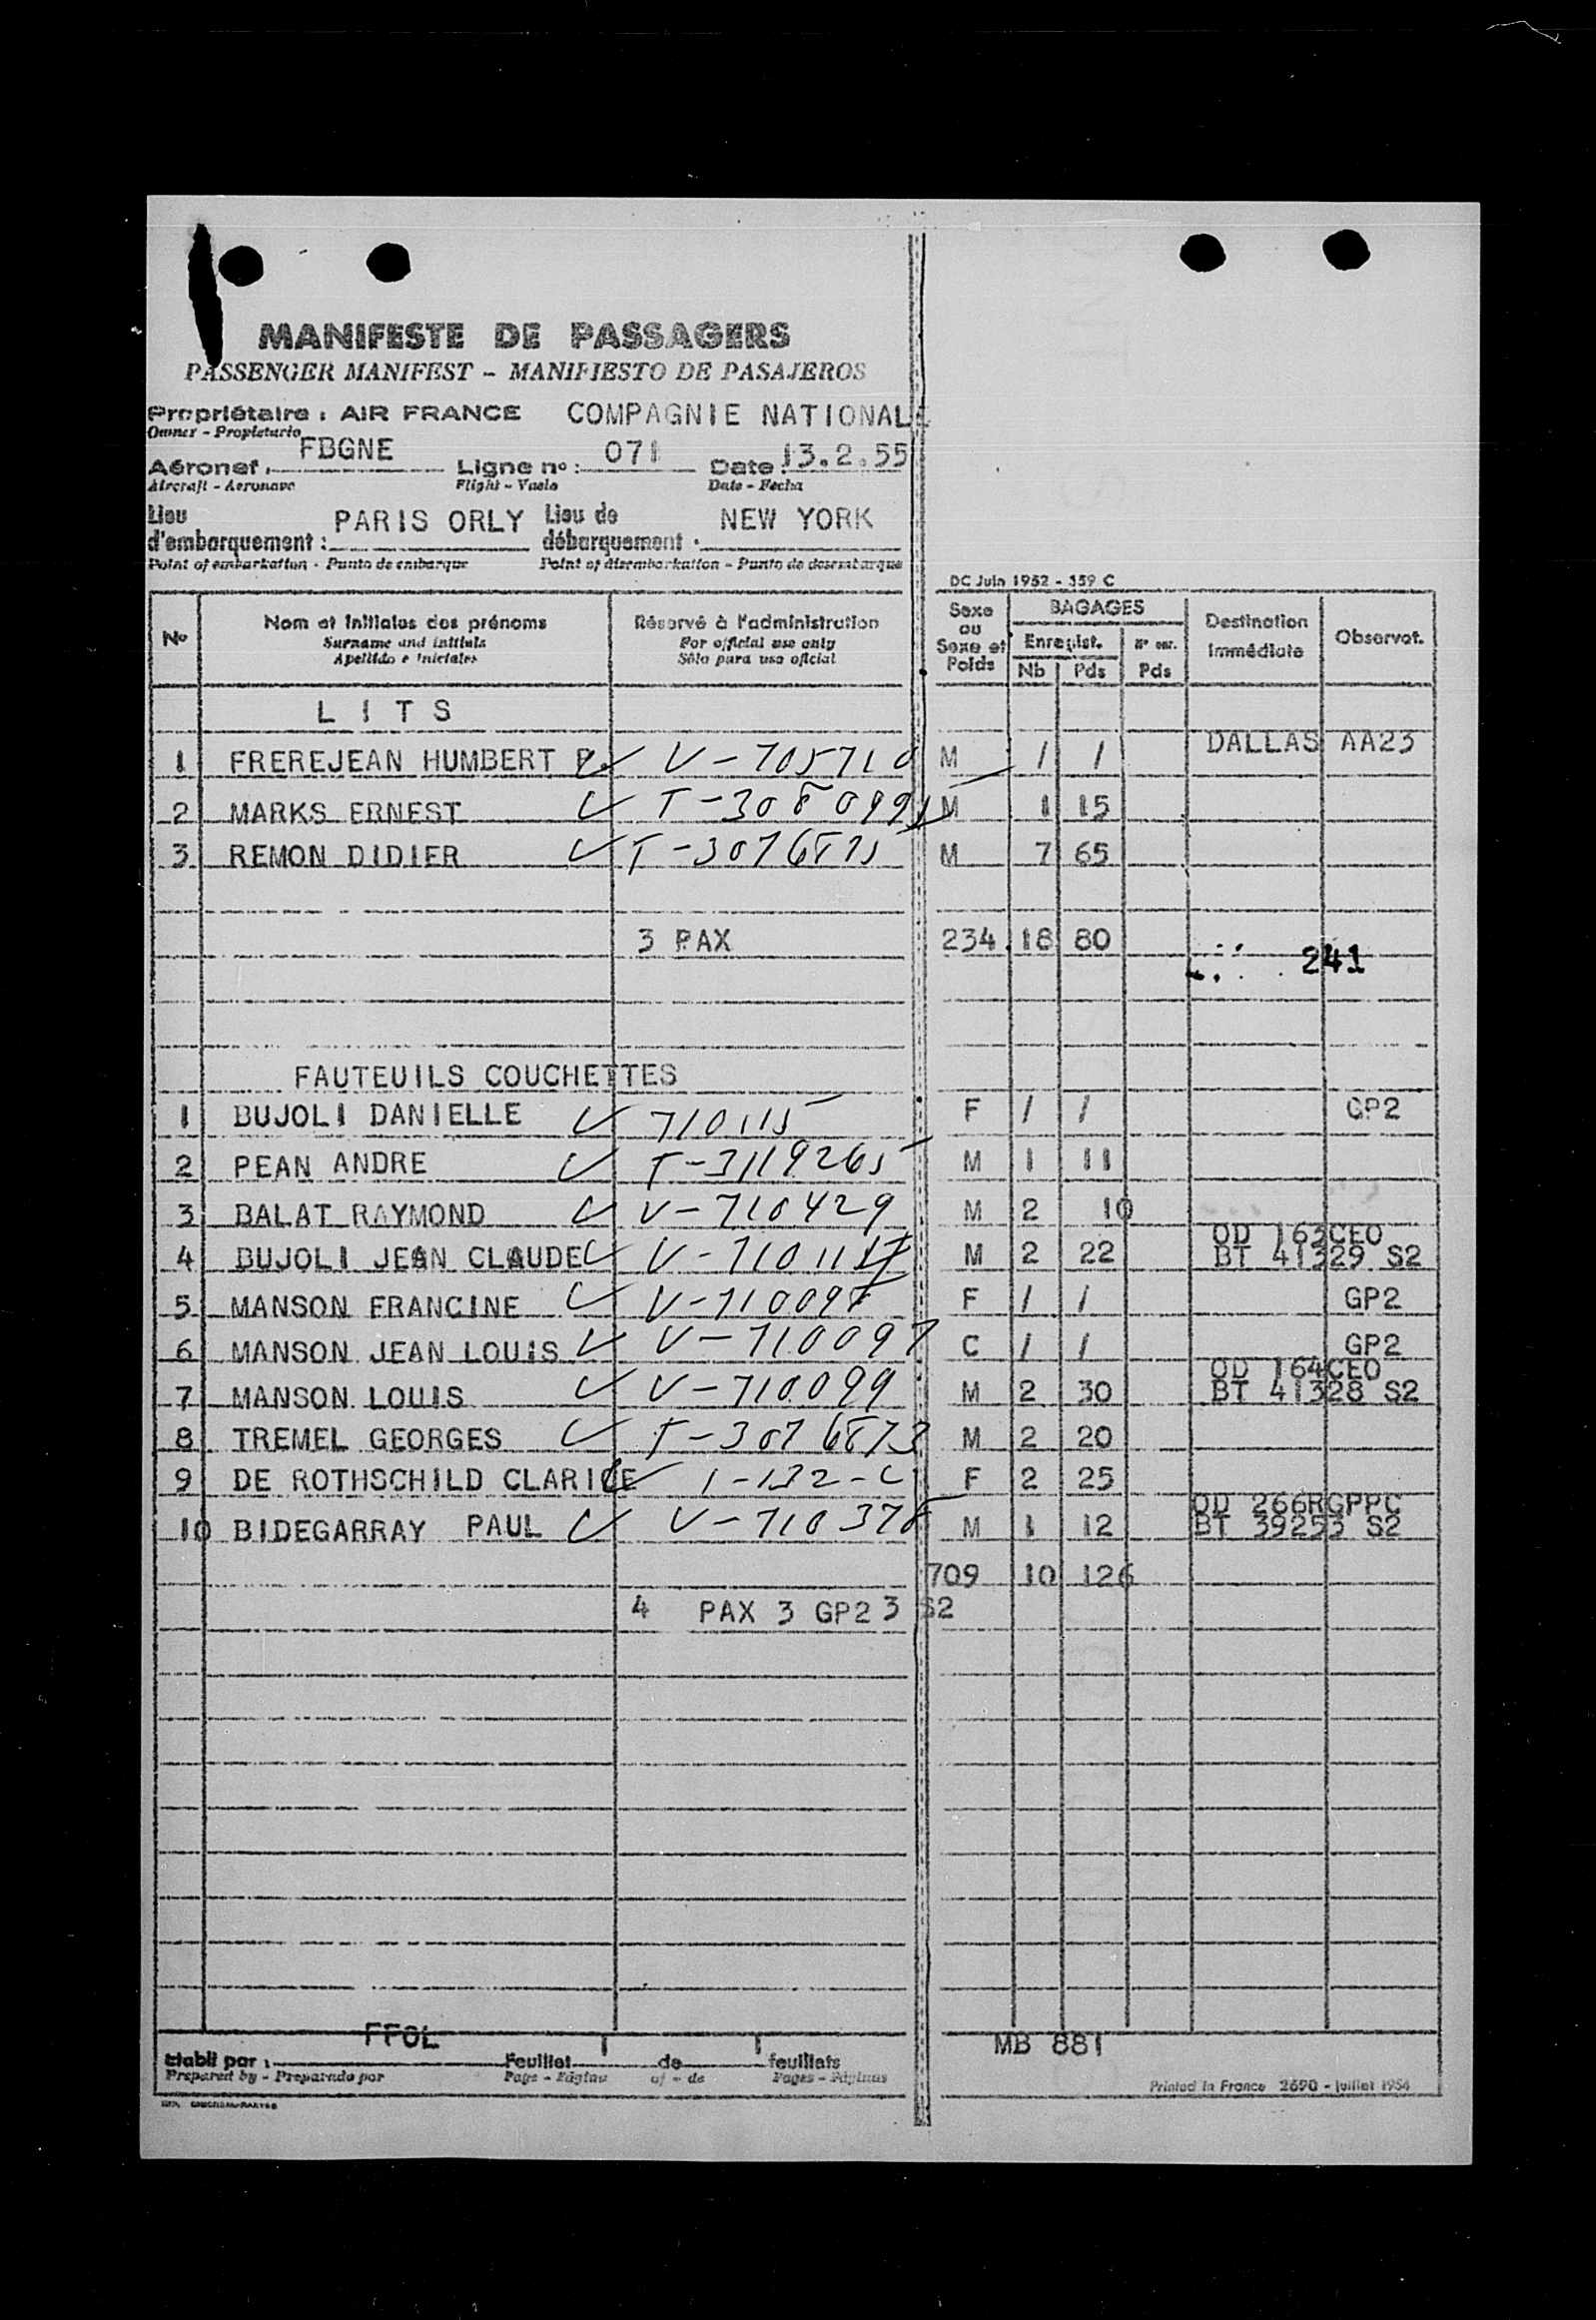 MANIFESTE DE PASSAGERS
PASSENGER MANIFEST - MANIFIESTO DE PASAJEROS
Propriétaire : AIR FRANCE COMPAGNIE NATIONALE
Owner - Propietario
Aéronef : FBGNE Ligne no : 071 Date 13.2.55
Aircraft - Aeronave Flight - Vuelo Date - Fecha
Lieu d'embarquement : PARIS ORLY Lieu de débarquement : NEW YORK
Point of embarkation - Punto de embarque Point of disembarkation - Punto de desembarque
DC Juin 1952 - 359 C
No Nom et initiales des prénoms Réservé à l'administration Sexe ou Sexe et Poids BAGAGES Destination immédiate Observat.
Surname and initials For official use only Enregist.
Apellido e iniciales Sólo para uso oficial Nb Pds Pds
LITS
1 FREREJEAN HUMBERT P. V-705710 M / / DALLAS AA23
2 MARKS ERNEST M 1 15
3 REMON DIDIER T-3076875 M 7 65
3 PAX 234 18 80
241
FAUTEUILS COUCHETTES
1 BUJOLI DANIELLE 710115 F / / GP2
2 PEAN ANDRE T-3119265 M 1 11
3 BALAT RAYMOND V-710429 M 2 10
4 BUJOLI JEAN CLAUDE M 2 22 OD 163CEO
BT 41329 S2
5 MANSON FRANCINE F / / GP2
6 MANSON JEAN LOUIS V-710097 C / / GP2
7 MANSON LOUIS V-710099 M 2 30 OD 164CEO
BT 41328 S2
8 TREMEL GEORGES T-3076873 M 2 20
9 DE ROTHSCHILD CLARICE F 2 25
10 BIDEGARRAY PAUL V-710378 M 1 12 OD 266RGPPC
BT 39253 S2
709 10 126
4 PAX 3 GP2 3 S2
FFOL MB 881
Etabli par : Feuillet 1 de 1 feuillets
Prepared by - Preparado por Page - Página of - de Pages - Páginas
Printed in France 2690 - juillet 1954